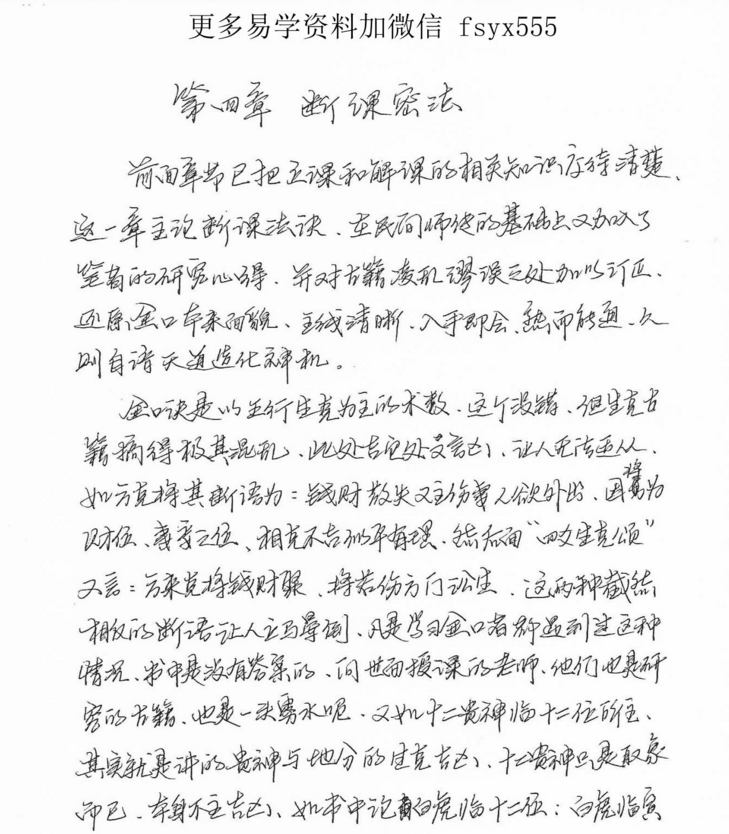 更多易学资料加微信 fsyx555
第四章 断课密法
前面章节已把立课和解课的相关知识交待清楚、
这一章主论断课法诀、在民间师传的基础上又加入了
笔者的研究心得、并对古籍凌乱谬误之处加以订正、
还原金口本来面貌、主线清晰、入手即会、熟而能通、久
则自谙天道造化神机。
金口诀是以五行生克为主的术数、这个没错、但生克古
籍搞得极其混乱、此处言吉它处又言凶、让人无法适从、
如方克将其断语为：钱财散失又主伤妻人欲外出、因将为
财位、妻妾之位、相克不吉似乎有理、然后面“四文生克颂”
又言：方来克将钱财聚、将若伤方门讼生、这两种截然
相反的断语让人立马晕倒、凡是学习金口者都遇到过这种
情况、书中是没有答案的、问世面授课的老师、他们也是研
究的古籍、也是一头雾水呢、又如十二贵神临十二位所主、
其实就是讲的贵神与地分的生克吉凶、十二贵神只是取象
而已、本身不主吉凶、如书中论白虎临十二位：白虎临寅